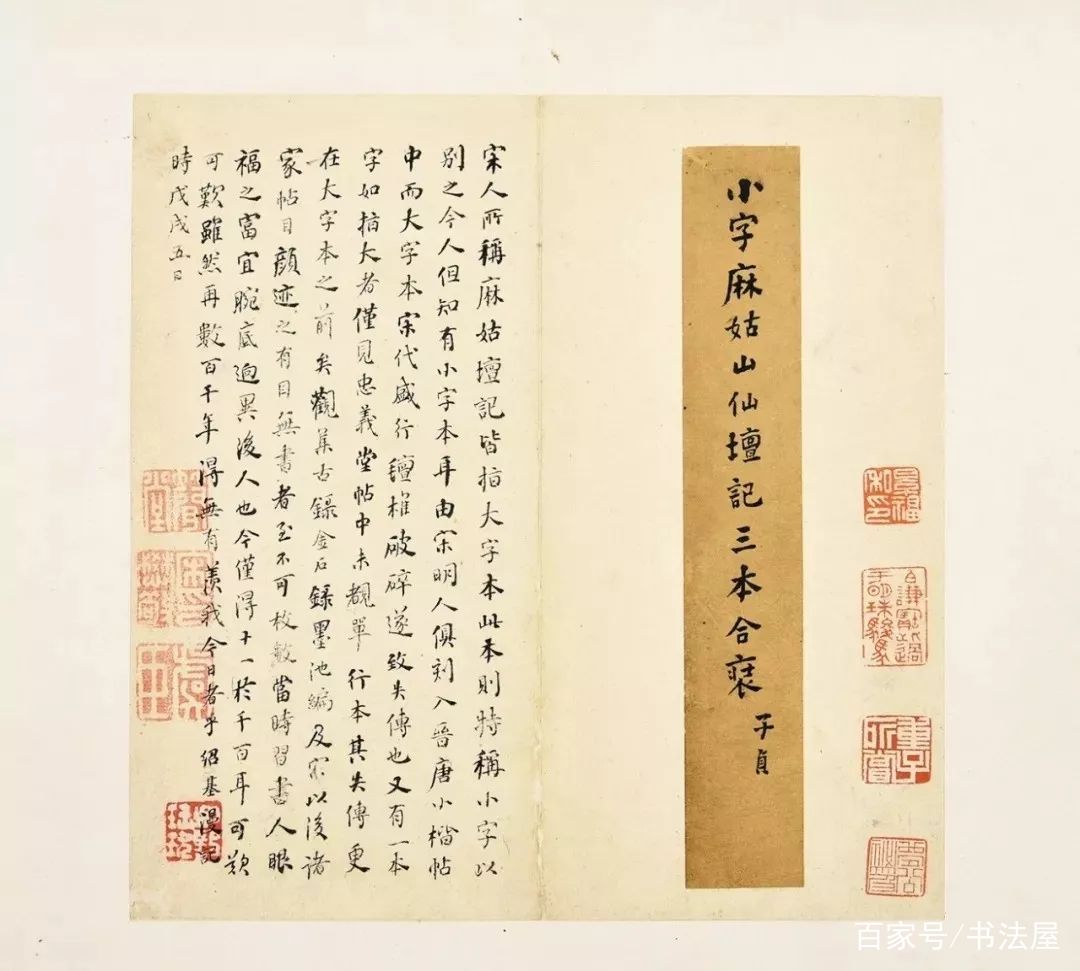 小字麻姑山仙壇記三本合裝
子貞
宋人所稱麻姑壇記皆指大字本此本則特稱小字以
別之今人但知有小字本耳由宋明人俱刻入晉唐小楷帖
中而大字本宋代盛行氊椎破碎遂致失傳也又有一本
字如指大者僅見忠義堂帖中未覩單行本其失傳更
在大字本之前矣觀集古錄金石錄墨池編及宋以後諸
家帖目顏迹之有目無書者至不可枚數當時習書人眼
福之富宜腕底迥異後人也今僅得十一於千百耳可歎
可歎雖然再數百千年得無有羨我今日者乎紹基漫記
時戊戌五日
景福私印
子所賞
百家号/书法屋